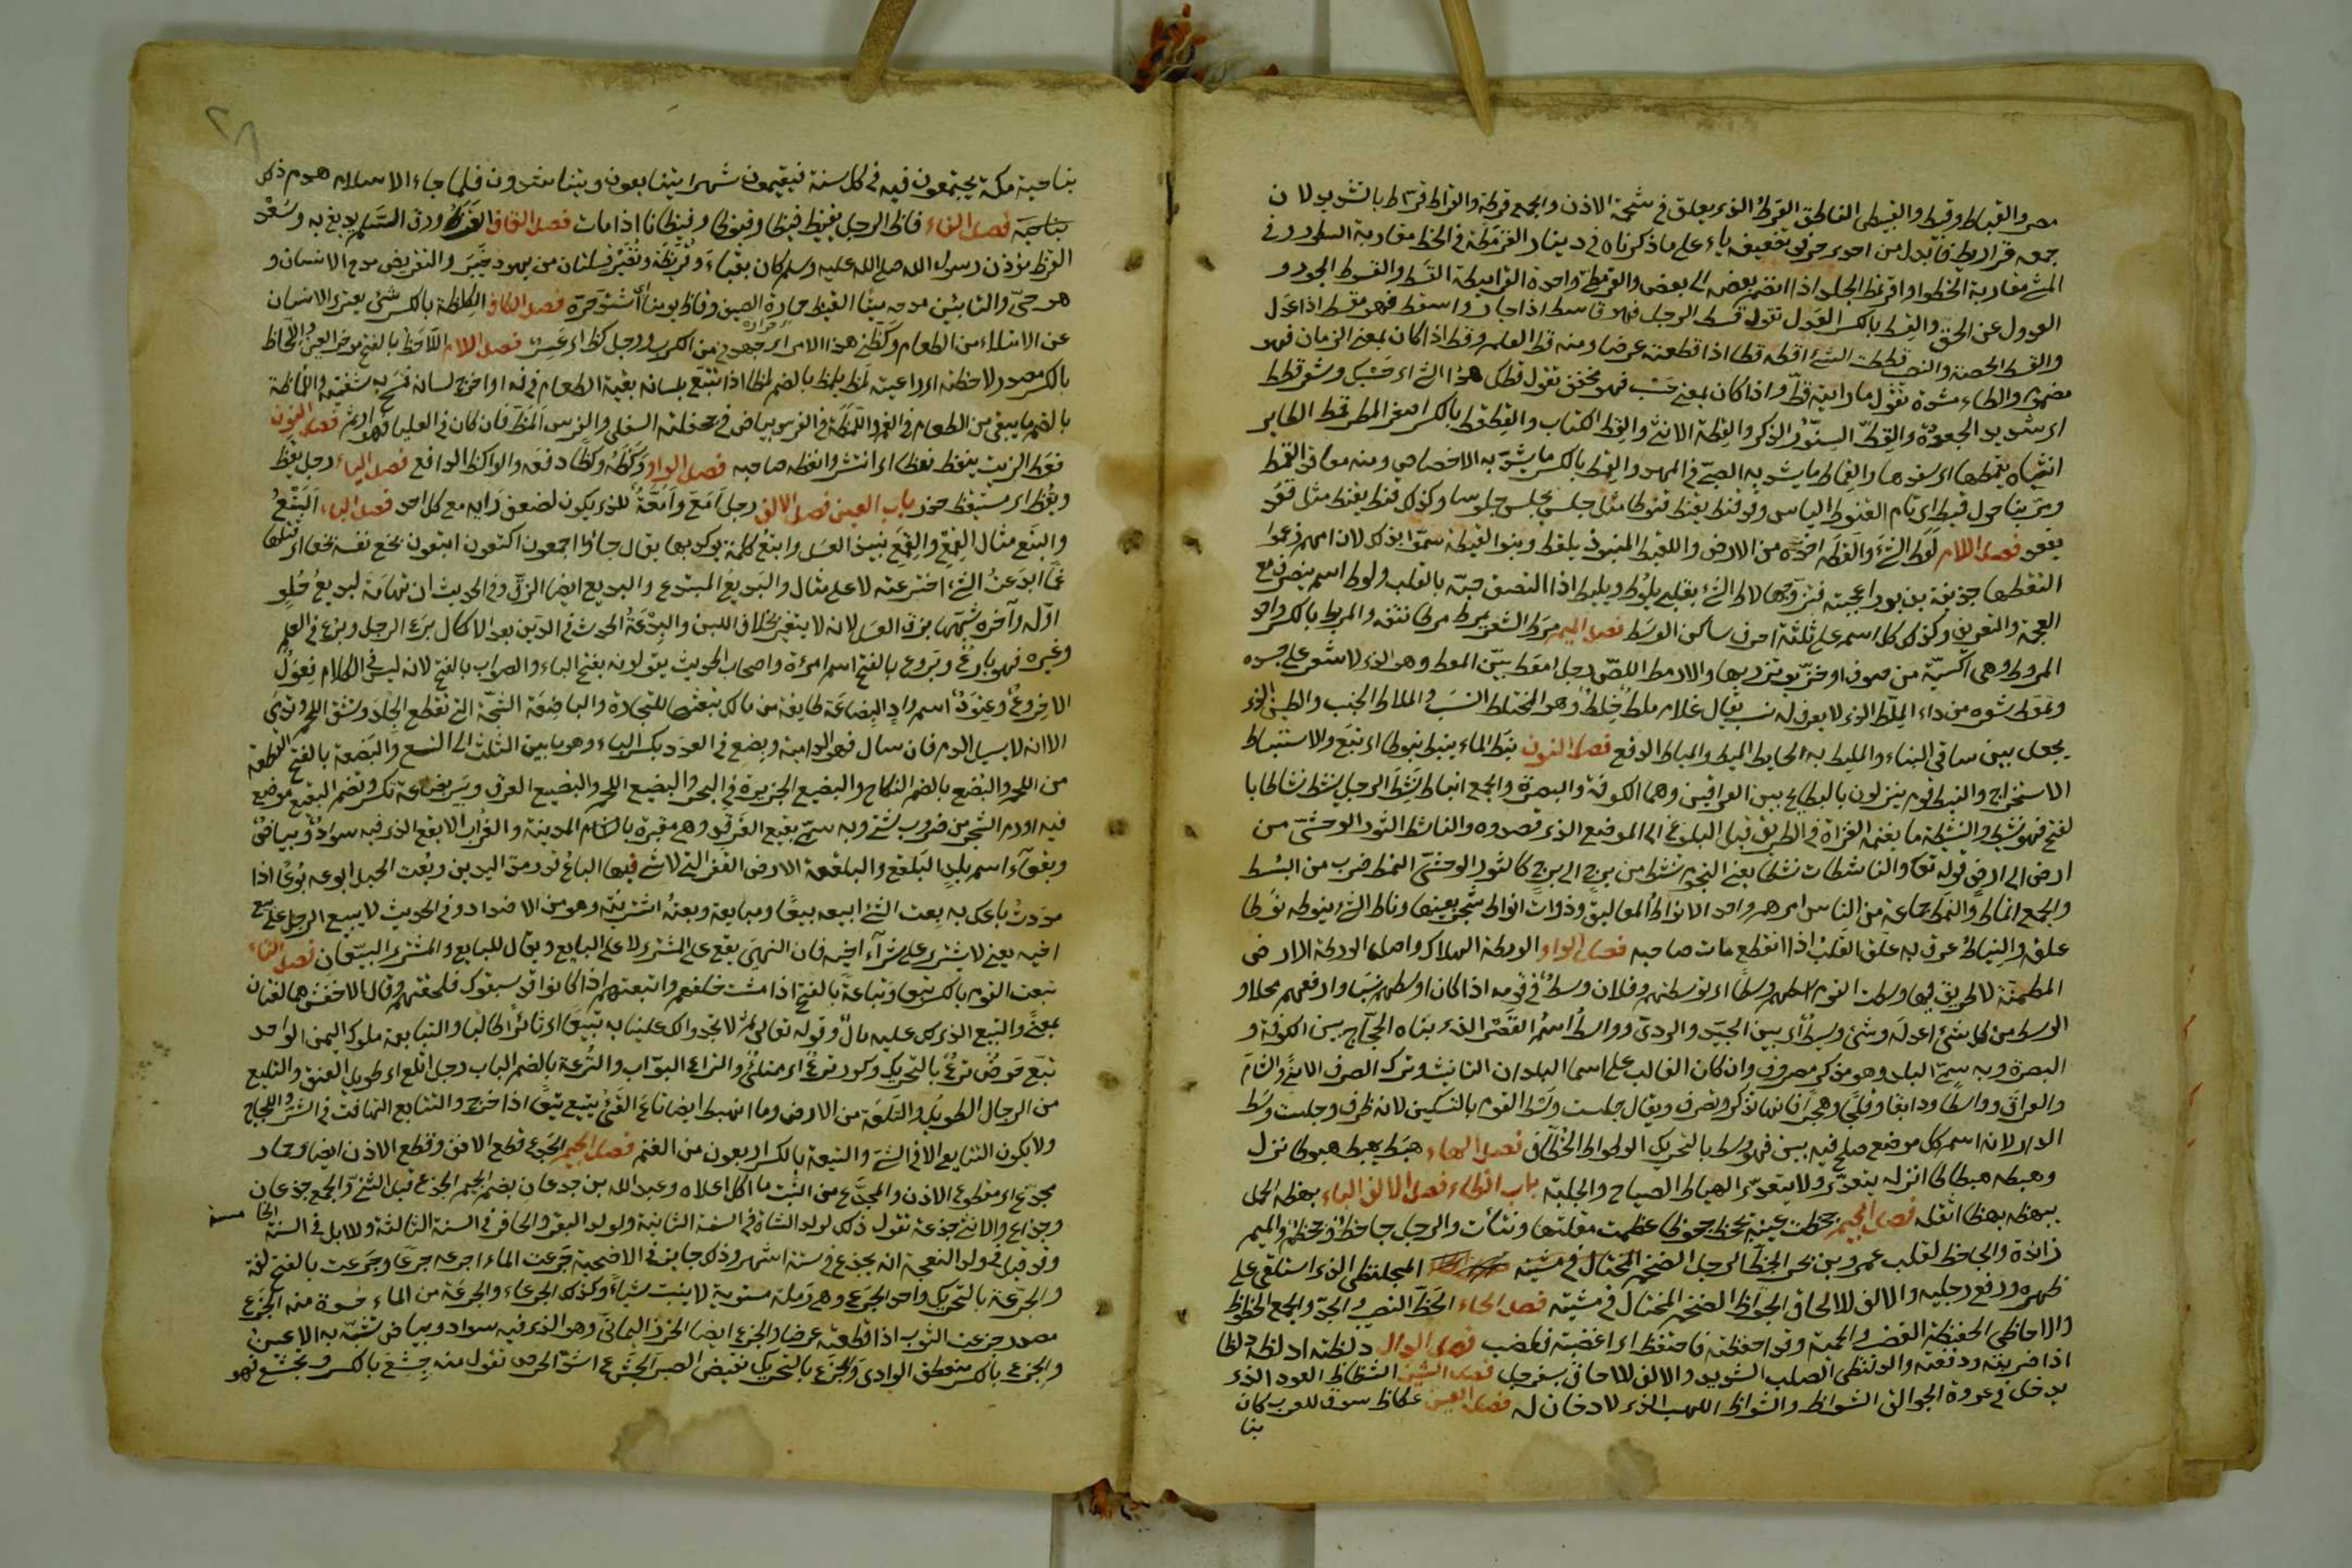 مصر والقباط وقبط والقبيطى الناطق القرط الذى يعلق فى شحمة الاذن والجمع قرطة والقراط قرّاط بالتشديد لان
جمعه قراريط فابدل من احدى حرفى تضعيفه ياء على ما ذكرناه فى دينار القرمطة فى الخط مقاربة السطور وفى
المشى مقاربة الخطو واقرمّط الجلد اذا انضم بعضه الى بعض والقرمطى واحدة القرامطة القسط والقسوط الجور و
العدول عن الحق والقسط بالكسر العدل تقول قسط الرجل فهو قاسط اذا جار واسقط فهو مقسط اذا عدل
والقسط الحصة والنصيب قططت الشئ اقطه قطا اذا قطعته عرضا ومنه قط القلم وقط اذا كان بمعنى الزمان فهو
مضموم والطاء مشددة تقول ما رايته قطّ واذا كان بمعنى حسب فهو مخفف تقول قطك هذا الشئ اى حسبك وشعر قطط
اى شديد الجعودة والقطّ السنّور الذكر والقطة الانثى والقط الكتاب والقطقط بالكسر اصغر المطر قمط الطاير
انثاه يقمطها اى سفدها والقماط ما يشد به الصبى فى المهد والقمط بالكسر ما يشدّ به الاخصاص ومنه معاقد القمط
ومرّ بنا حول قميط اى تام القنوط الياس وقد قنط يقنط قنوطا مثل جلس يجلس جلوسا وكذلك قنط يقنط مثل قعد
يقعد فصل اللام لقط الشئ والقطه اخذه من الارض واللقيط المنبوذ يلقط وبنو اللقيطة سمّوا بذلك لان امهم زعموا
التقطها حذيفة بن بدر اعجبته فتزوجها لاط الشئ بقلبى يلوط ويليط اذا التصق حبّه بالقلب ولوط اسم ينصرف مع
العجمة والتعريف وكذلك كل اسم على ثلثة احرف ساكن الوسط فصل الميم مرط الشعر يمرط مرطا نتفه والمرط بالكسر واحد
المروط وهى اكسية من صوف او خزّ يؤتزر بها والامرط اللصّ رجل امعط بيّن المعط وهو الذى لا شعر على جسده
وتمعط شعره من داء الملط الذى لا يعرف له نسب يقال غلام ملط خلط وهو المختلط النسب والملاط الجنب والطين الذى
يجعل بين ساقى البناء والمليط به الحايط الميط والمياط الدفع فصل النون نبط الماء ينبط نبوطا اى نبع والاستنباط
الاستخراج والنبط قوم ينزلون بالبطايح بين العراقين وهما الكوفة والبصرة والجمع انباط نشط الرجل ينشط نشاطا با
لفتح فهو نشيط والنشيطة ما يغنمه الغزاة فى الطريق قبل البلوغ الى الموضع الذى قصدوه والناشط الثور الوحشى من
ارض الى ارض قوله تعا والناشطات نشطا يعنى النجوم تنشط من برج الى برج كالثور الوحشى النمط ضرب من البسط
والجمع انماط والنمط جماعة من الناس امرهم واحد الانواط المعاليق وذوات انواط شجر بعينها وناط الشئ ينوطه نوطا
علقه والنياط عرق به علق القلب اذا انقطع مات صاحبه فصل الواو الورطة الهلاك واصلها الورطة الارض
المطمئنة لا طريق فيها وسطت القوم اسطهم وسطا اى توسطتهم وفلان وسط فى قومه اذا كان اوسطهم نسبا وارفعهم محلا و
الوسط من كل شئ اعدله وشئ وسط اى بين الجيّد والردى وواسط اسم القصر الذى بناه الحجّاج بين الكوفة و
البصرة وبه سمّى البلد وهو مذكر مصروف وان كان الغالب على اسما البلدان التانيث وترك الصرف الا منى والشام
والعراق وواسطا ودابقا وفلجا وهجرا فانها تذكر وتصرف ويقال جلست وسط القوم بالتسكين لانه ظرف وجلست وسط
الدار لانه اسم كل موضع صلح فيه بين فهو وسط بالتحريك الوطواط الخطّاف فصل الهاء هبط يهبط هبوطا نزل
وهبطه هبطا اى انزله يتعدّى ولا يتعدّى الهياط الصياح والجلبة باب الظاء فصل الالف الباء بهظه الحمل
يبهظه بهظا اثقله فصل الجيم جحظت عينه تجحظ جحوظا عظمت مقلتها ونتأت والرجل جاحظ وجحظم والميم
زائدة والجاحظ لقب عمرو بن بحر الجظ الرجل الضخم المختال فى مشيته المجلنظى الذى استلقى على
ظهره ورفع رجليه والالف للالحاق الجوّاظ الضخم المختال فى مشيته فصل الحاء الحظّ النصيب والجدّ والجمع الحظوظ
والاحاظى الحفيظة الغضب والحمية وقد احفظته فاحتفظ اى اغضبته فغضب فصل الدال دلظته ادلظه دلظا
اذا ضربته ودفعته والدلنظى الصلب الشديد والالف للالحاق بسفرجل فصل الشين الشظاظ العود الذى
يدخل فى عروة الجوالق الشواظ والشواظ اللهب الذى لا دخان له فصل العين عكاظ سوق للعرب كان
بنا
٢٨
بناحية مكة يجتمعون فيه فى كل سنة فيقيمون شهرا يتبايعون ويتناشدون فلما جاء الاسلام هدم ذلك
بناحية فصل الفاء فاظ الرجل يفيظ فيظا وفيوظا وفيظانا اذا مات فصل القاف القرظ ورق السلم يدبغ به وسعد
القرظ مؤذن رسول الله صلى الله عليه وسلم كان بقباء وقريظة ونضير قبيلتان من يهود خيبر والتقريض مدح الانسان و
هو حىّ والتابين مدحه ميتا القيظ حمارة الصيف وقاظ يومنا اى اشتد حرّه فصل الكاف الكظة بالكسر شئ يعترى الانسان
عن الامتلاء من الطعام وكظّنى هذا الامر اى جهدنى من الكرب ورجل كظّ اى عسر فصل اللام اللّحاظ بالفتح مؤخر العين واللّحاظ
بالكسر مصدر لاحظته اى راعيته لمظ يلمظ بالضم لمظا اذا تتبّع بلسانه بقية الطعام فى فيه او اخرج لسانه فمسح به شفتيه واللماظة
بالضم ما يبقى من الطعام فى الفم واللمظة فى الفرس بياض فى جحفلته السفلى والفرس المظ فان كان فى العليا فهو ارثم فصل النون
نعظ الزبّ ينعظ نعظا اى انتشر وانعظه صاحبه فصل الواو وكظه وكظا دفعه والواكظ الدافع فصل الياء رجل يقظ
ويقظ اى مستيقظ حذر باب العين فصل الالف رجل امّع وامّعة للذى يكون لضعف رايه مع كل احد فصل الباء البتع
والبتع مثال القمع والقمع نبيذ العسل وابتع كلمة يوكد بها يقال جاؤا اجمعون اكتعون ابتعون بخع نفسه بخعا اى قتلها
غمّا ابدعت الشئ اخترعته لا على مثال والبديع المبتدع والبديع ايضا الزقّ وفى الحديث ان تهامة كبديع حلو
اوّله وآخره شبّهها بزق العسل لانه لا يتغير بخلاف اللبن والبدعة الحدث فى الدين بعد الاكمال برع الرجل وبرع فى العلم
وغيره فهو بارع وبروع بالفتح اسم امرءة واصحاب الحديث يقولونه بفتح الباء والصواب بالفتح لانه ليس فى الكلام فعول
الا خروع وعتود اسم واد البضاعة طايفة من مالك تبعثها للتجارة والباضعة الشجّة التى تقطع الجلد وتشق اللحم وتدمى
الا انه لا يسيل الدم فان سال فهو الدامية وبضع فى العدد بكسر الباء وهو ما بين الثلث الى التسع والبضعة بالفتح القطعة
من اللحم والبضع بالضم النكاح والبضيع الجزيرة فى البحر والبضيع اللحم والبضيع العرق وبئر بضاعة تكسر وتضم البقيع موضع
فيه اروم الشجر من ضروب شتى وبه سمّى بقيع الغرقد وهى مقبرة بالمدينة والغراب الابقع الذى فيه سواد وبياض
وبقعاء اسم بلد البلقع والبلقعة الارض القفر التى لا شئ فيها الباع قدر مدّ اليدين وبعت الحبل ابوعه بوعا اذا
مددت باعك به بعت الشئ ابيعه بيعا ومبايعة وبعته اشتريته وهو من الاضداد وفى الحديث لا يبيع الرجل على بيع
اخيه يعنى لا يشترى على شراء اخيه فان النهى يقع على المشترى لا على البايع ويقال للبايع والمشترى البيّعان فصل التاء
تبعت القوم بالكسر تبعا وتباعة بالفتح اذا مشيت خلفهم واتبعتهم اذا كانوا قد سبقوك فلحقتهم وقال الاخفش هما لغتان
بمعنى والتبيع الذى لك عليه مال وقوله تعالى ثم لا تجدوا لك علينا به تبيعا اى ثائرا طالبا والتبابعة ملوك اليمن الواحد
تبّع حوض ترع بالتحريك وكوز ترع اى ممتلئ والتراع البوّاب والترعة بالضم الباب رجل اتلع اى طويل العنق والتليع
من الرجال الطويل والتلعة من الارض وما انهبط ايضا تاع القئ يتيع تيعا اذا خرج والتتايع التهافت فى الشر واللجاج
ولا يكون التتايع الا فى الشرّ والتيعة بالكسر اربعون من الغنم فصل الجيم الجدع قطع الانف وقطع الاذن ايضا وحمار
مجدّع اى مقطوع الاذن والمجدّع من النبت ما اكل اعلاه وعبد الله بن جدعان بضم الجيم الجذع قبل الثنى والجمع جذعان
وجذاع والانثى جذعة تقول ذلك لولد الشاة فى السنة الثانية ولولد البقر والحافر فى السنة الثالثة وللابل فى السنة الخامسة
وقد قيل فى ولد النعجة انه يجذع فى ستة اشهر وذلك جايز فى الاضحية جرعت الماء اجرعه جرعا وجرعت بالفتح لغة
والجرعة بالتحريك واحد الجرع وهى رملة مستوية لا ينبت شياء وكذلك الجرعاء والجرعة من الماء حسوة منه الجزع
مصدر جزعت الثوب اذا قطعته عرضا والجزع ايضا الخرز اليمانى وهو الذى فيه سواد وبياض تشبّه به الاعين
والجزع بالكسر منعطف الوادى والجزع بالتحريك نقيض الصبر الجشع اشدّ الحرص تقول منه جشع بالكسر وتجشّع فهو